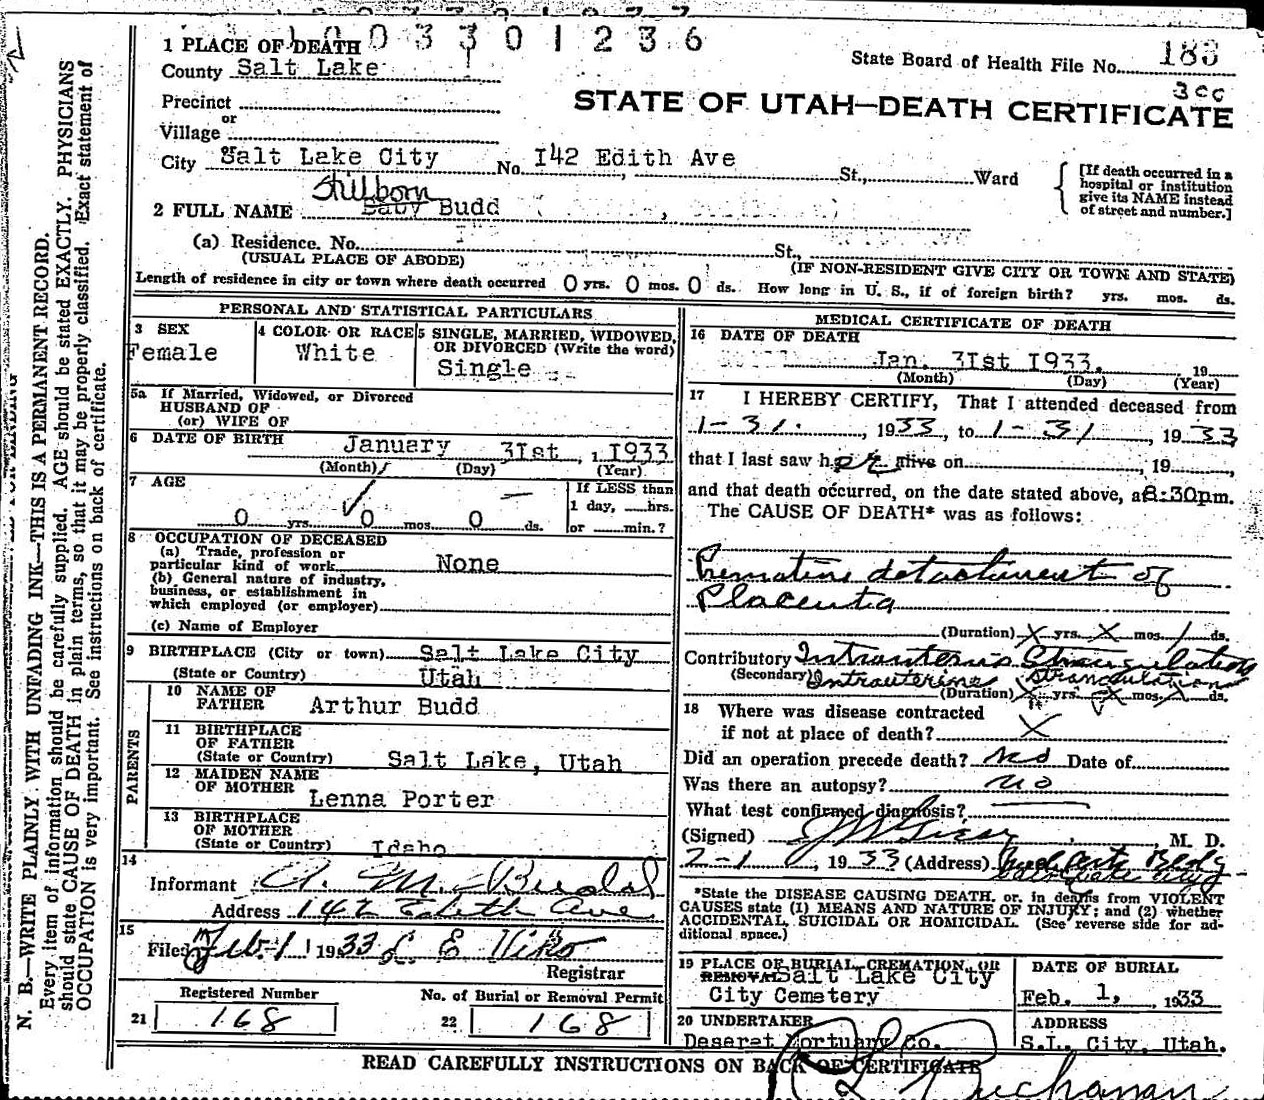 1 PLACE OF DEATH 0 0 3 3 0 1 2 3 6
State Board of Health File No. 183
County Salt Lake
3cc
STATE OF UTAH—DEATH CERTIFICATE
Precinct
or
Village
or
City Salt Lake City No. I42 Edith Ave St., Ward
[If death occurred in a hospital or institution give its NAME instead of street and number.]
Stillborn
2 FULL NAME Baby Budd
(a) Residence. No. St.,
(USUAL PLACE OF ABODE) (IF NON-RESIDENT GIVE CITY OR TOWN AND STATE)
Length of residence in city or town where death occurred 0 yrs. 0 mos. 0 ds. How long in U. S., if of foreign birth? yrs. mos. ds.
PERSONAL AND STATISTICAL PARTICULARS
3 SEX
Female
4 COLOR OR RACE
White
5 SINGLE, MARRIED, WIDOWED,
OR DIVORCED (Write the word)
Single
5a If Married, Widowed, or Divorced
HUSBAND OF
(or) WIFE OF
6 DATE OF BIRTH January 3Ist, I933
(Month) (Day) (Year)
7 AGE
0 yrs. 0 mos. 0 ds.
If LESS than
1 day, hrs.
or min.?
8 OCCUPATION OF DECEASED
(a) Trade, profession or
particular kind of work None
(b) General nature of industry,
business, or establishment in
which employed (or employer)
(c) Name of Employer
9 BIRTHPLACE (City or town) Salt Lake City
(State or Country) Utah
PARENTS
10 NAME OF
FATHER Arthur Budd
11 BIRTHPLACE
OF FATHER
(State or Country) Salt Lake, Utah
12 MAIDEN NAME
OF MOTHER Lenna Porter
13 BIRTHPLACE
OF MOTHER
(State or Country) Idaho
14
Informant A. M. Budd
Address 142 Edith Ave.
15
Filed Feb. 1 1933 L. E. Viko
Registrar
Registered Number
21 168
No. of Burial or Removal Permit
22 168
MEDICAL CERTIFICATE OF DEATH
16 DATE OF DEATH
Jan. 3Ist I933. 19
(Month) (Day) (Year)
17 I HEREBY CERTIFY, That I attended deceased from
1-31, 1933, to 1-31, 1933
that I last saw her alive on , 19
and that death occurred, on the date stated above, at 8:30pm.
The CAUSE OF DEATH* was as follows:
Premature detachment of
Placenta
(Duration) X yrs. X mos. 1 ds.
Contributory Intrauterine Strangulation
(Secondary) Intrauterine strangulation
(Duration) X yrs. X mos. X ds.
18 Where was disease contracted
if not at place of death? X
Did an operation precede death? No Date of
Was there an autopsy? no
What test confirmed diagnosis?
(Signed) M. D.
2-1, 1933 (Address) Bldg
Salt Lake City
*State the DISEASE CAUSING DEATH, or, in deaths from VIOLENT
CAUSES state (1) MEANS AND NATURE OF INJURY; and (2) whether
ACCIDENTAL, SUICIDAL OR HOMICIDAL. (See reverse side for ad-
ditional space.)
19 PLACE OF BURIAL, CREMATION, OR
REMOVAL Salt Lake City
City Cemetery
DATE OF BURIAL
Feb. 1, 1933
20 UNDERTAKER
Deseret Mortuary Co.
ADDRESS
S.L. City, Utah.
Buchanan
READ CAREFULLY INSTRUCTIONS ON BACK OF CERTIFICATE
N. B.—WRITE PLAINLY, WITH UNFADING INK—THIS IS A PERMANENT RECORD.
Every item of information should be carefully supplied. AGE should be stated EXACTLY. PHYSICIANS
should state CAUSE OF DEATH in plain terms, so that it may be properly classified. Exact statement of
OCCUPATION is very important. See instructions on back of certificate.